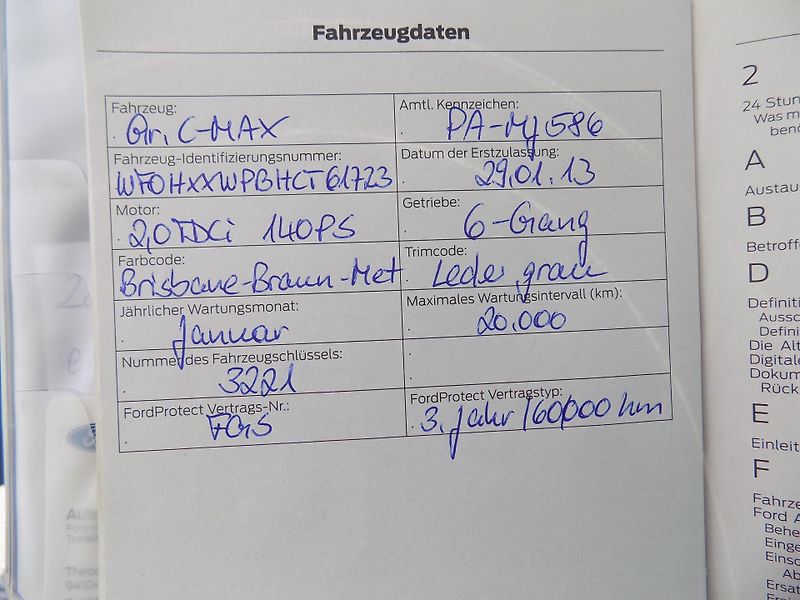 Fahrzeugdaten
Fahrzeug:
Gr. C-MAX
Amtl. Kennzeichen:
PA-MJ 586
Fahrzeug-Identifizierungsnummer:
WF0HXXWPBHCT61723
Datum der Erstzulassung:
29.01.13
Motor:
2,0 TDCi 140PS
Getriebe:
6-Gang
Farbcode:
Brisbane-Braun-Met
Trimcode:
Leder grau
Jährlicher Wartungsmonat:
Januar
Maximales Wartungsintervall (km):
20.000
Nummer des Fahrzeugschlüssels:
3221
FordProtect Vertrags-Nr.:
FGS
FordProtect Vertragstyp:
3. Jahr/60000 km
2
24 Stun
Was m
beno
A
Austau
B
Betroffe
D
Definiti
Aussc
Defini
Die Alt
Digitale
Dokum
Rück
E
Einleit
F
Fahrze
Ford A
Behe
Einge
Einsc
Ab
Ersat